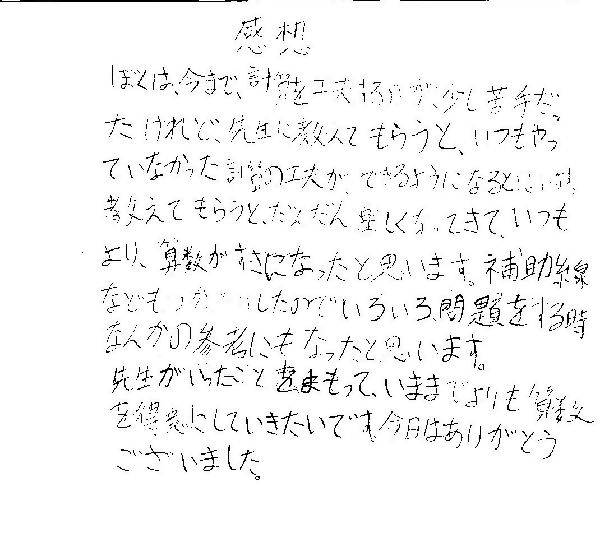 感想
ぼくは、今まで、計算を工夫するのが、少し苦手だっ
たけれど、先生に教えてもらうと、いつもやっ
ていなかった計算の工夫が、できるようになると
教えてもらうと、だんだん楽しくなってきて、いつも
より、算数がすきになったと思います。補助線
なども したのでいろいろ問題をする時
なんかの参考にもなったと思います。
先生がいったことをまもって、いままでよりも算数
を得意にしていきたいです。今日はありがとう
ございました。